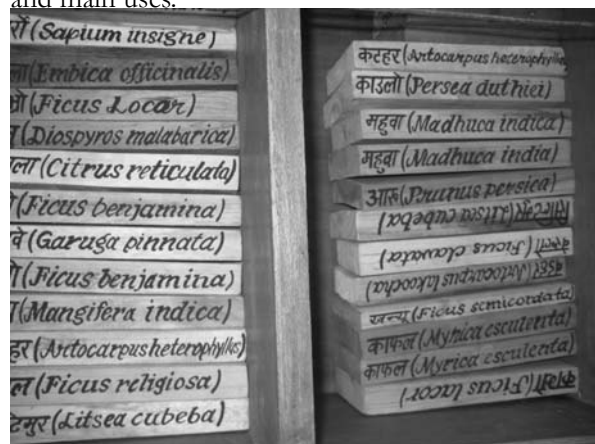 and main uses.
(Sapium insigne)
ला (Embica officinalis)
(Ficus Locar)
(Diospyros malabarica)
ला (Citrus reticulata)
(Ficus benjamina)
(Garuga pinnata)
(Ficus benjamina)
(Mangifera indica)
हर (Artocarpus heterophyllus)
ल (Ficus religiosa)
टिमुर (Litsea cubeba)
कटहर (Artocarpus heterophyllus
काउलो (Persea duthiei)
महुवा (Madhuca indica)
महुवा (Madhuca india)
आरू (Prunus persica)
(Litsea cubeba)
(Ficus clavata)
(Artocarpus lakoocha)
खन्यू (Ficus semicordata)
काफल (Myrica esculenta)
काफल (Myrica esculenta)
(Ficus lacor)